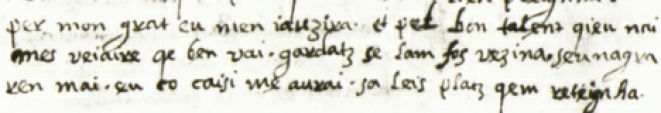 per mon grat eu men iauzira. et pel bon talent qieu nai
mes veiaire qe ben vai. gardatz se lam fos vezina. seu nagra
ren mai. eu co caisi me aurai. sa leis platz qem reteinha.